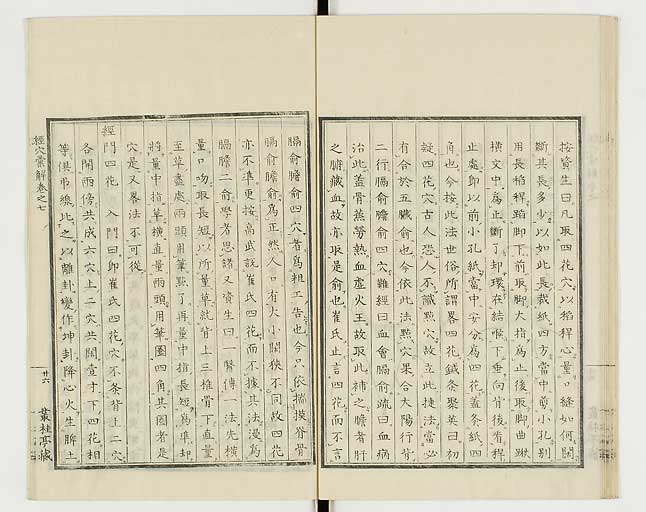 按資生曰凡取四花穴以稻稈心量口縫如何闊
斷其長多少以如此長裁紙四方當中剪小孔別
用長稻稈踏脚下前取脚大指為止後取脚曲䐐
橫文中為止斷了却環在結喉下垂向背後看稈
止處即以前小孔紙當中安分為四花蓋灸紙四
角也今按此法世俗所謂畧四花鍼灸聚英曰初
疑四花穴古人恐人不識點穴故立此捷法當必
有合於五臟俞也今依此法點穴果合太陽行背
二行膈俞膽俞四穴難經曰血會膈俞疏曰血病
治此蓋骨蒸勞熱血虛火王故取此補之膽者肝
之腑藏血故亦取是俞也崔氏止言四花而不言
膈俞膽俞四穴者為粗工告也今只依揣摸脊骨
膈俞膽俞為正然人口有大小闊狹不同故四花
亦不準更按高武說崔氏四花而不據其法漫為
膈膽二俞學者思諸又資生曰一醫傳一法先橫
量口吻取長短以所量草就背上三椎骨下直量
至草盡處兩頭用筆點了再量中指長短為準却
將量中指草橫直量兩頭用筆圈四角其圈者是
穴是又畧法不可從
經門四花 入門曰即崔氏四花穴不灸背上二穴
各開兩傍共成六穴上二穴共闊壹寸下四花相
等俱吊線比之以離卦變作坤卦降心火生脾土
經穴彙解卷之七
廿六
叢桂亭藏